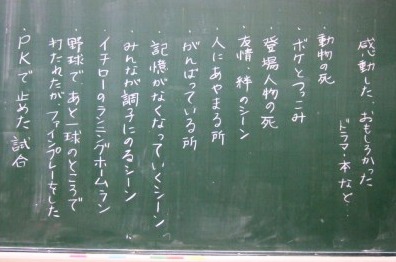 感動した、おもしろかった
ドラマ・本など…
・動物の死
・ボケとつっこみ
・登場人物の死
・友情・絆のシーン
・人にあやまる所
・がんばっている所
・記憶がなくなっていくシーン
・みんなが調子にのるシーン
・イチローのランニングホームラン
・野球であと一球のところで
打たれたが、ファインプレーをした
・PKで止めた試合